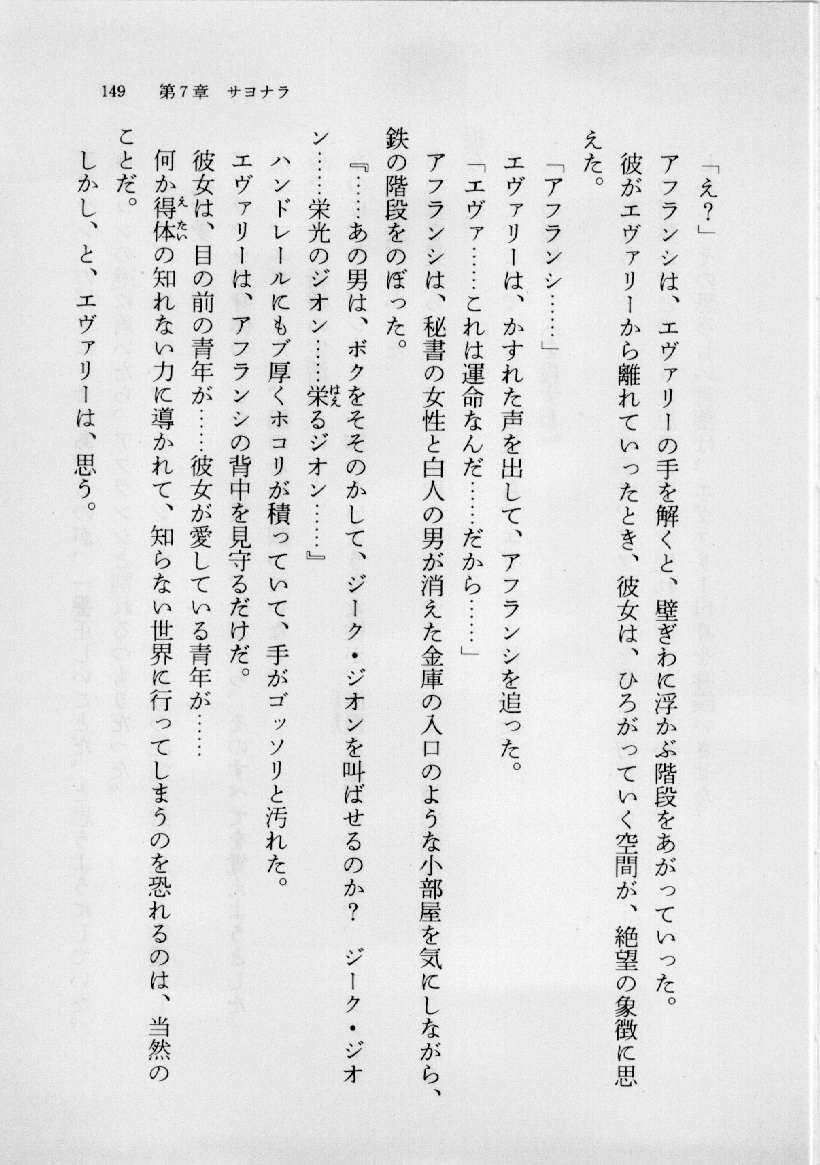 149　第7章　サヨナラ
「え?」
アフランシは、エヴァリーの手を解くと、壁ぎわに浮かぶ階段をあがっていった。
彼がエヴァリーから離れていったとき、彼女は、ひろがっていく空間が、絶望の象徴に思
えた。
「アフランシ……」
エヴァリーは、かすれた声を出して、アフランシを追った。
「エヴァ……これは運命なんだ……だから……」
アフランシは、秘書の女性と白人の男が消えた金庫の入口のような小部屋を気にしながら、
鉄の階段をのぼった。
『……あの男は、ボクをそそのかして、ジーク・ジオンを叫ばせるのか?　ジーク・ジオ
ン……栄光のジオン……栄るジオン……』
はえ
ハンドレールにもブ厚くホコリが積っていて、手がゴッソリと汚れた。
エヴァリーは、アフランシの背中を見守るだけだ。
彼女は、目の前の青年が……彼女が愛している青年が……
何か得体の知れない力に導かれて、知らない世界に行ってしまうのを恐れるのは、当然の
えたい
ことだ。
しかし、と、エヴァリーは、思う。